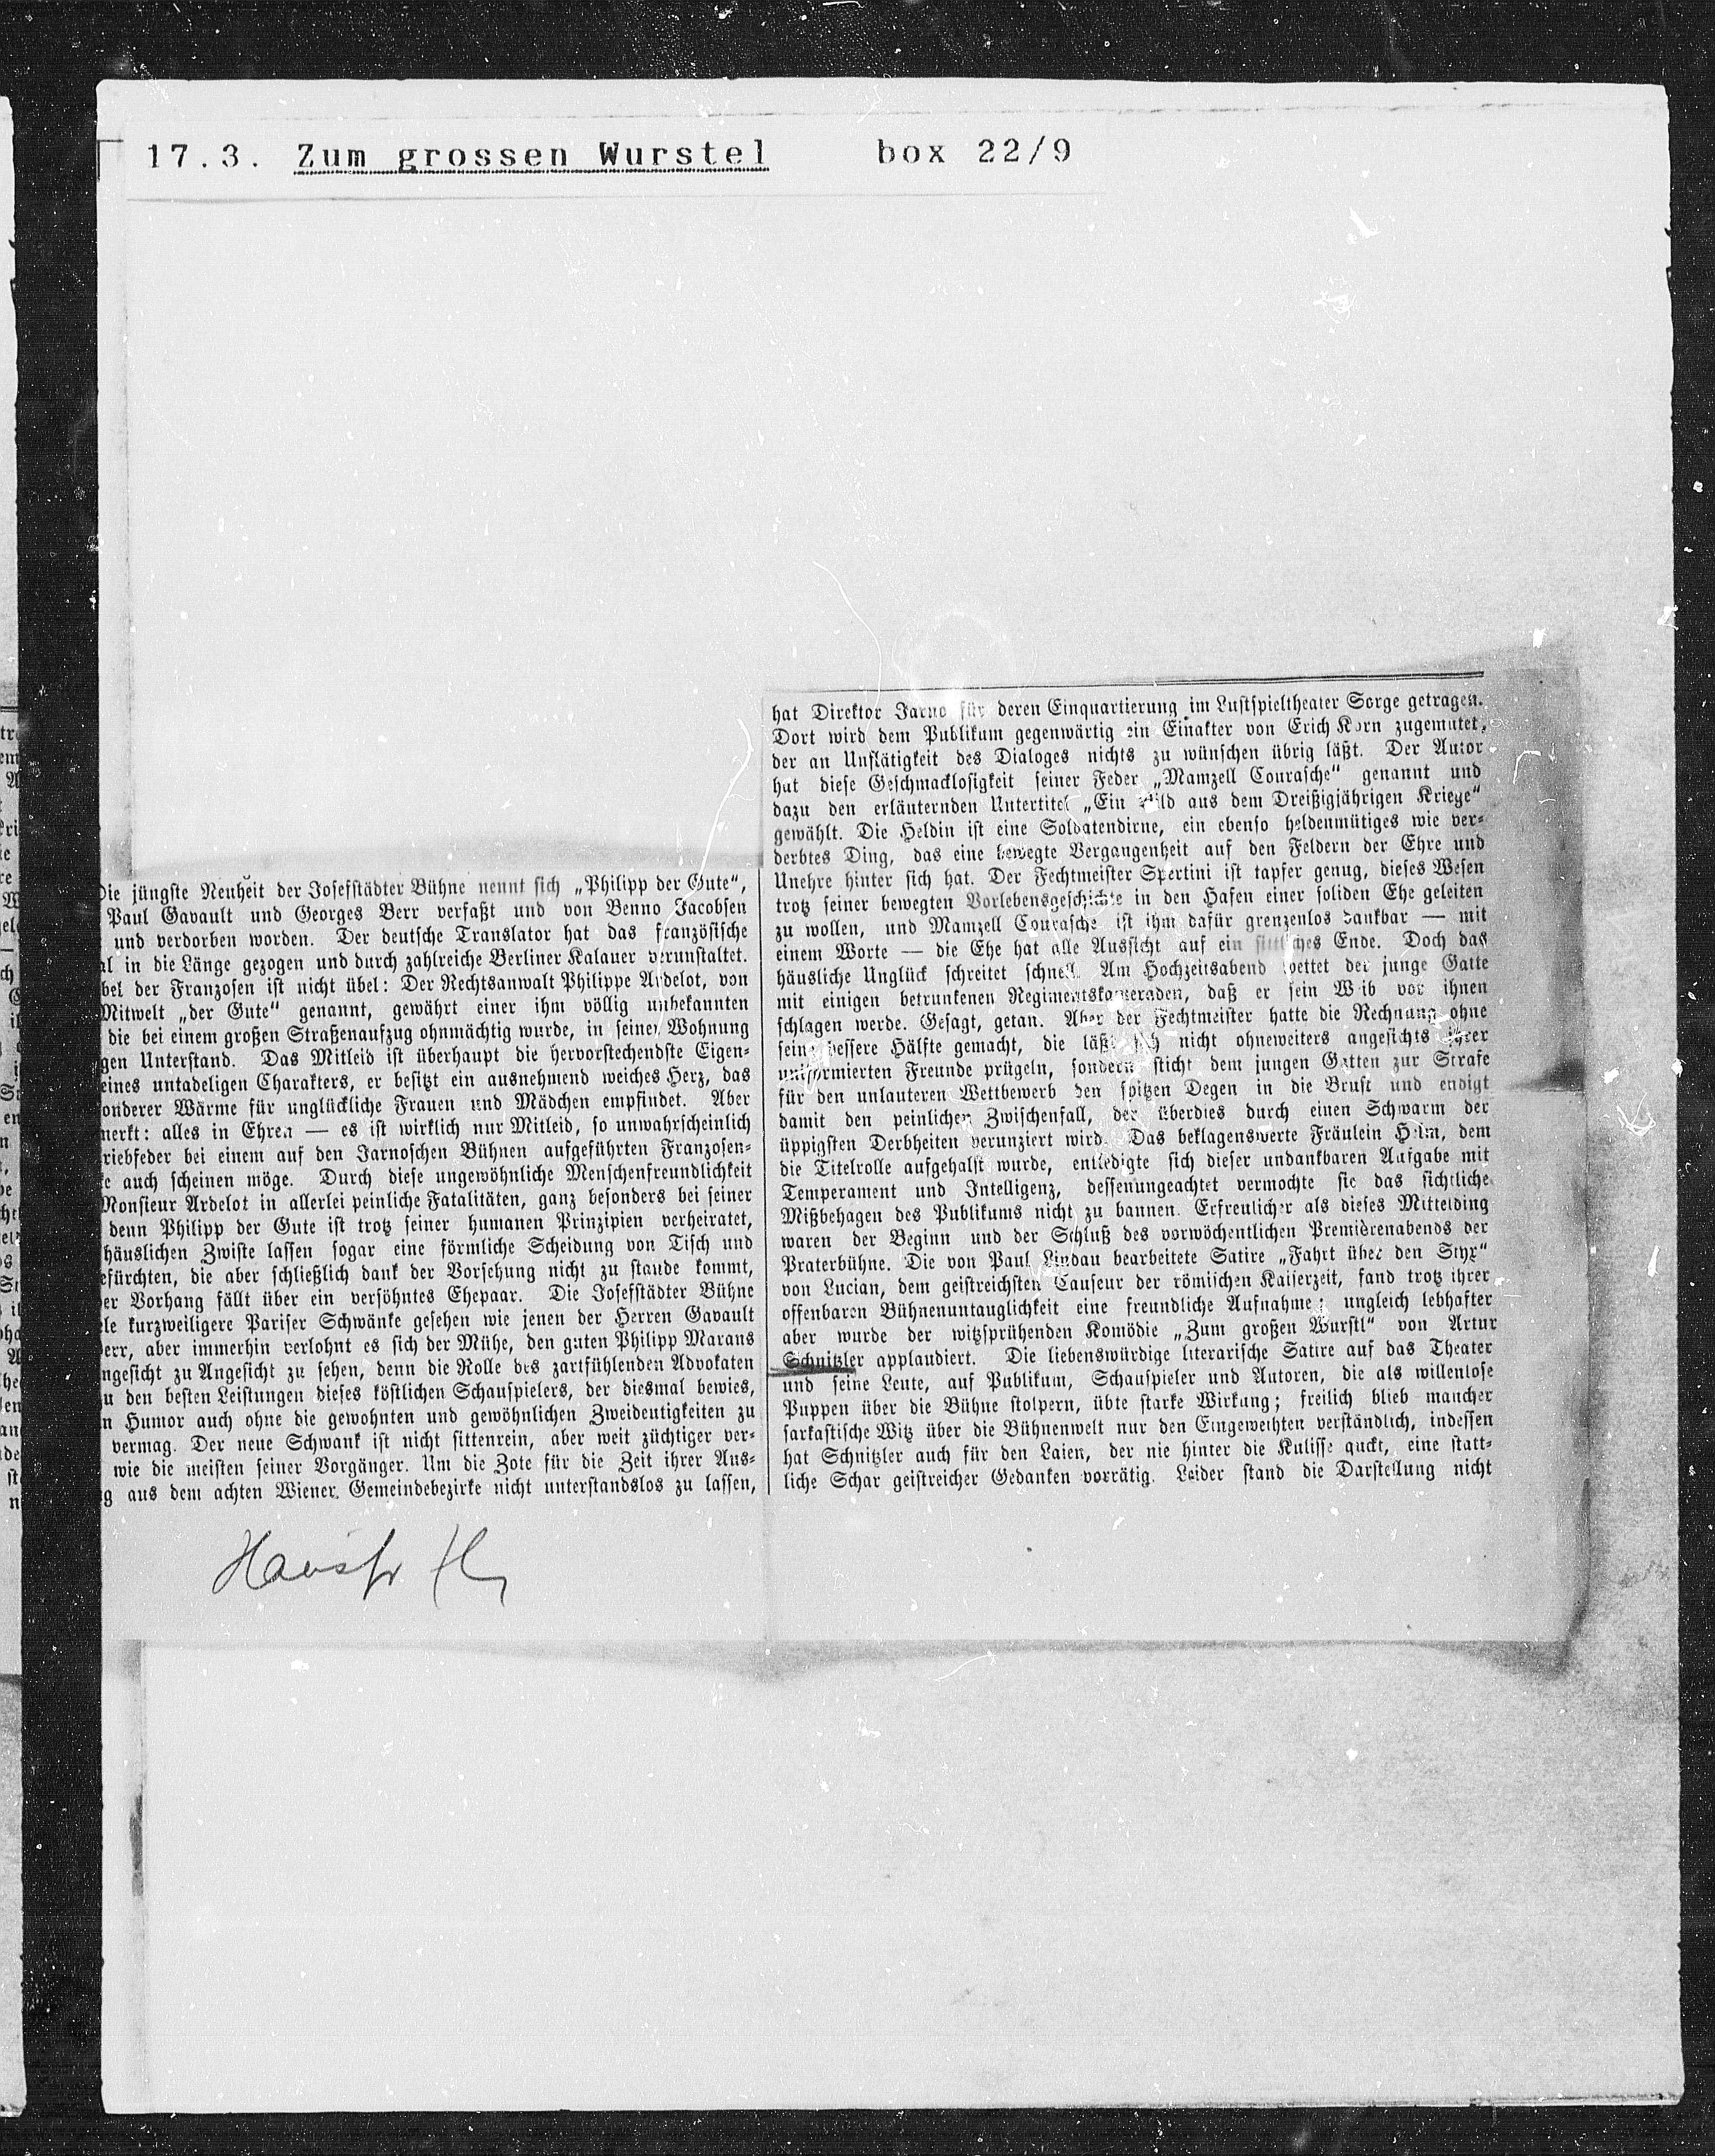 17.3. Zum grossen Wurstel box 22/9
Die jüngste Neuheit der Josefstädter Bühne nennt sich „Philipp der Gute“,
Paul Gavault und Georges Berr verfaßt und von Benno Jacobsen
und verdorben worden. Der deutsche Translator hat das französische
al in die Länge gezogen und durch zahlreiche Berliner Kalauer verunstaltet.
bel der Franzosen ist nicht übel: Der Rechtsanwalt Philippe Ardelot, von
Mitwelt „der Gute“ genannt, gewährt einer ihm völlig unbekannten
die bei einem großen Straßenaufzug ohnmächtig wurde, in seiner Wohnung
gen Unterstand. Das Mitleid ist überhaupt die hervorstechendste Eigen-
eines untadeligen Charakters, er besitzt ein ausnehmend weiches Herz, das
onderer Wärme für unglückliche Frauen und Mädchen empfindet. Aber
merkt: alles in Ehren — es ist wirklich nur Mitleid, so unwahrscheinlich
riebfeder bei einem auf den Jarnoschen Bühnen aufgeführten Franzosen-
e auch scheinen möge. Durch diese ungewöhnliche Menschenfreundlichkeit
Monsieur Ardelot in allerlei peinliche Fatalitäten, ganz besonders bei seiner
denn Philipp der Gute ist trotz seiner humanen Prinzipien verheiratet,
häuslichen Zwiste lassen sogar eine förmliche Scheidung von Tisch und
efürchten, die aber schließlich dank der Vorsehung nicht zu stande kommt,
er Vorhang fällt über ein versöhntes Ehepaar. Die Josefstädter Bühne
le kurzweiligere Pariser Schwänke gesehen wie jenen der Herren Gavault
Berr, aber immerhin verlohnt es sich der Mühe, den guten Philipp Marans
ngesicht zu Angesicht zu sehen, denn die Rolle des zartfühlenden Advokaten
u den besten Leistungen dieses köstlichen Schauspielers, der diesmal bewies,
n Humor auch ohne die gewohnten und gewöhnlichen Zweideutigkeiten zu
vermag. Der neue Schwank ist nicht sittenrein, aber weit züchtiger ver-
wie die meisten seiner Vorgänger. Um die Zote für die Zeit ihrer Aus-
g aus dem achten Wiener Gemeindebezirke nicht unterstandslos zu lassen,
hat Direktor Jarno für deren Einquartierung im Lustspieltheater Sorge getragen.
Dort wird dem Publikum gegenwärtig ein Einakter von Erich Korn zugemutet,
der an Unflätigkeit des Dialoges nichts zu wünschen übrig läßt. Der Autor
hat diese Geschmacklosigkeit seiner Feder „Mamzell Courasche“ genannt und
dazu den erläuternden Untertitel „Ein Bild aus dem Dreißigjährigen Kriege“
gewählt. Die Heldin ist eine Soldatendirne, ein ebenso heldenmütiges wie ver-
derbtes Ding, das eine bewegte Vergangenheit auf den Feldern der Ehre und
Unehre hinter sich hat. Der Fechtmeister Spertini ist tapfer genug, dieses Wesen
trotz seiner bewegten Vorlebensgeschichte in den Hafen einer soliden Ehe geleiten
zu wollen, und Mamzell Courasche ist ihm dafür grenzenlos dankbar — mit
einem Worte — die Ehe hat alle Aussicht auf ein sittliches Ende. Doch das
häusliche Unglück schreitet schnell. Am Hochzeitsabend wettet der junge Gatte
mit einigen betrunkenen Regimentskameraden, daß er sein Weib vor ihnen
schlagen werde. Gesagt, getan. Aber der Fechtmeister hatte die Rechnung ohne
seine bessere Hälfte gemacht, die läßt sich nicht ohneweiters angesichts ihrer
uniformierten Freunde prügeln, sondern sticht dem jungen Gatten zur Strafe
für den unlauteren Wettbewerb den spitzen Degen in die Brust und endigt
damit den peinlichen Zwischenfall, der überdies durch einen Schwarm der
üppigsten Derbheiten verunziert wird. Das beklagenswerte Fräulein Helm, dem
die Titelrolle aufgehalst wurde, entledigte sich dieser undankbaren Aufgabe mit
Temperament und Intelligenz, dessenungeachtet vermochte sie das sichtliche
Mißbehagen des Publikums nicht zu bannen. Erfreulicher als dieses Mittelding
waren der Beginn und der Schluß des vorwöchentlichen Premièrenabends der
Praterbühne. Die von Paul Lindau bearbeitete Satire „Fahrt über den Styx“
von Lucian, dem geistreichsten Causeur der römischen Kaiserzeit, fand trotz ihrer
offenbaren Bühnenuntauglichkeit eine freundliche Aufnahme; ungleich lebhafter
aber wurde der witzsprühenden Komödie „Zum großen Wurstl“ von Artur
Schnitzler applaudiert. Die liebenswürdige literarische Satire auf das Theater
und seine Leute, auf Publikum, Schauspieler und Autoren, die als willenlose
Puppen über die Bühne stolpern, übte starke Wirkung; freilich blieb mancher
sarkastische Witz über die Bühnenwelt nur den Eingeweihten verständlich, indessen
hat Schnitzler auch für den Laien, der nie hinter die Kulisse guckt, eine statt-
liche Schar geistreicher Gedanken vorrätig. Leider stand die Darstellung nicht